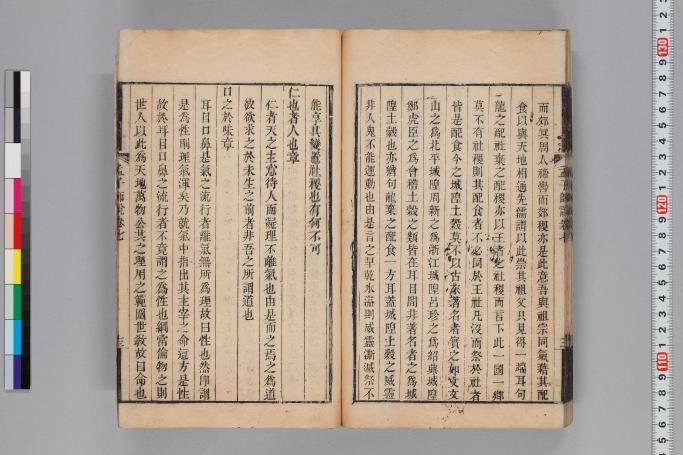 而郊冥周人禘嚳而郊稷亦是此意吾與祖宗同氣藉其配
食以與天地相通先儒謂以此崇其祖父只見得一端耳句
龍之配社棄之配稷亦以王者之社稷而言下此一國一鄉
莫不有社稷則其配食者不必同於王社凡沒而祭於社者
皆是配食今之城隍土穀莫不以古來著名者實之如文文
山之爲北平城隍周新之爲浙江城隍呂珍之爲紹興城隍
鄭虎臣之爲會稽土穀之類皆在耳目間非著名者之爲城
隍土穀也亦猶句龍棄之配食一方耳蓋城隍土穀之威靈
非人鬼不能運動也由是言之旱乾水溢則威靈澌滅祭不
能享其變置社稷也有何不可
仁也者人也章
仁者天之主意待人而凝理不離氣也由是而之焉之爲道
彼欲求之於未生之前者非吾之所謂道也
口之於味章
耳目口鼻是氣之流行者離氣無所爲理故曰性也然即謂
是爲性則理氣渾矣乃就氣中指出其主宰之命這方是性
故於耳目口鼻之流行者不竟謂之爲性也綱常倫物之則
世人以此爲天地萬物公共之理用之範圍世教故曰命也
孟子師說卷七